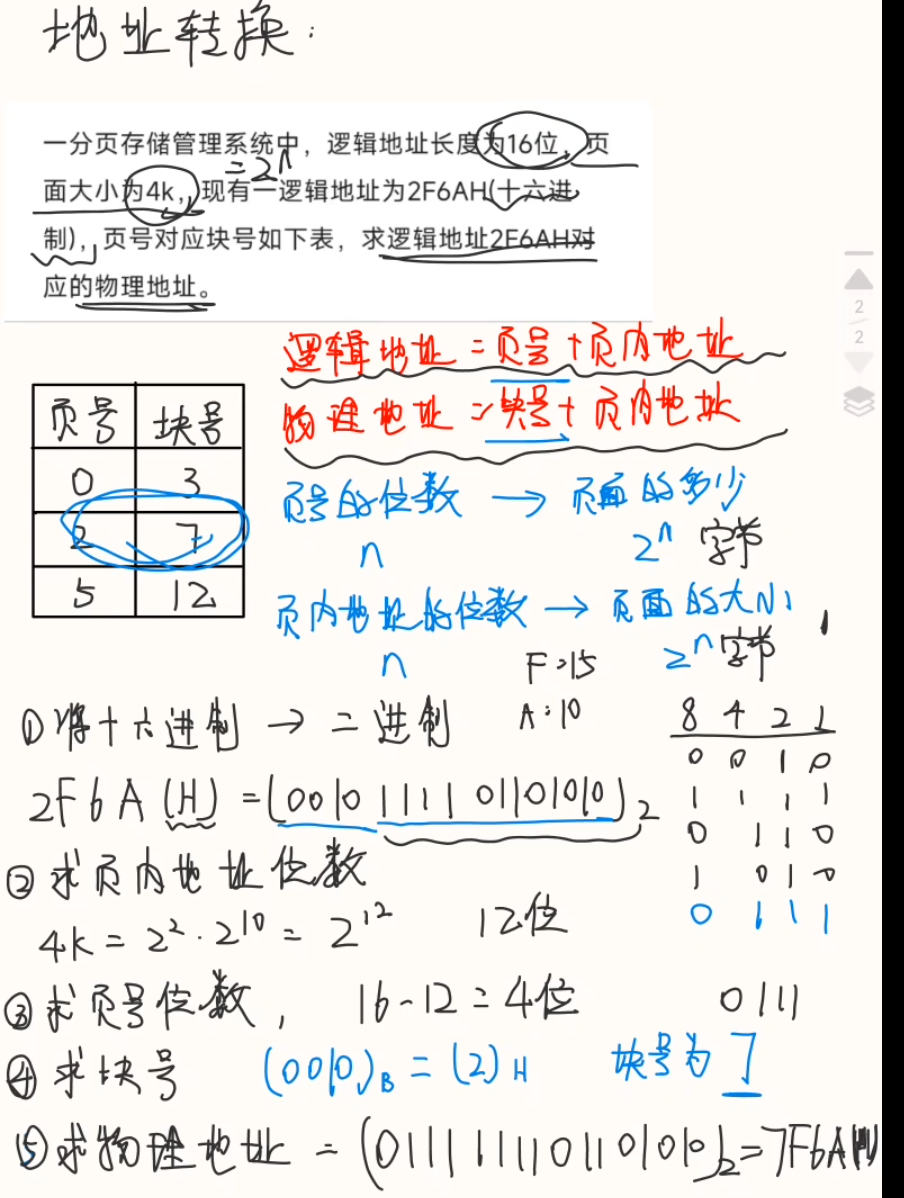 地址转换：
一分页存储管理系统中，逻辑地址长度为16位，页
=2^n
面大小为4k，现有一逻辑地址为2F6AH(十六进
制)，页号对应块号如下表，求逻辑地址2F6AH对
应的物理地址。
逻辑地址=页号+页内地址
物理地址=块号+页内地址
页号 块号
0 3
2 7
5 12
页号的位数 → 页面的多少
n 2^n 字节
页内地址的位数 → 页面的大小
n 2^n 字节
F:15
A:10
①将十六进制 → 二进制
8 4 2 1
0 0 1 0
1 1 1 1
0 1 1 0
1 0 1 0
0 1 1 1
2F6A(H)=(0010 1111 01101010)₂
②求页内地址位数
4k=2²·2¹⁰=2¹² 12位
③求页号位数， 16-12=4位 0111
④求块号 (0010)B=(2)H 块号为7
⑤求物理地址=(0111111101101010)₂=7F6A(H)
2
2